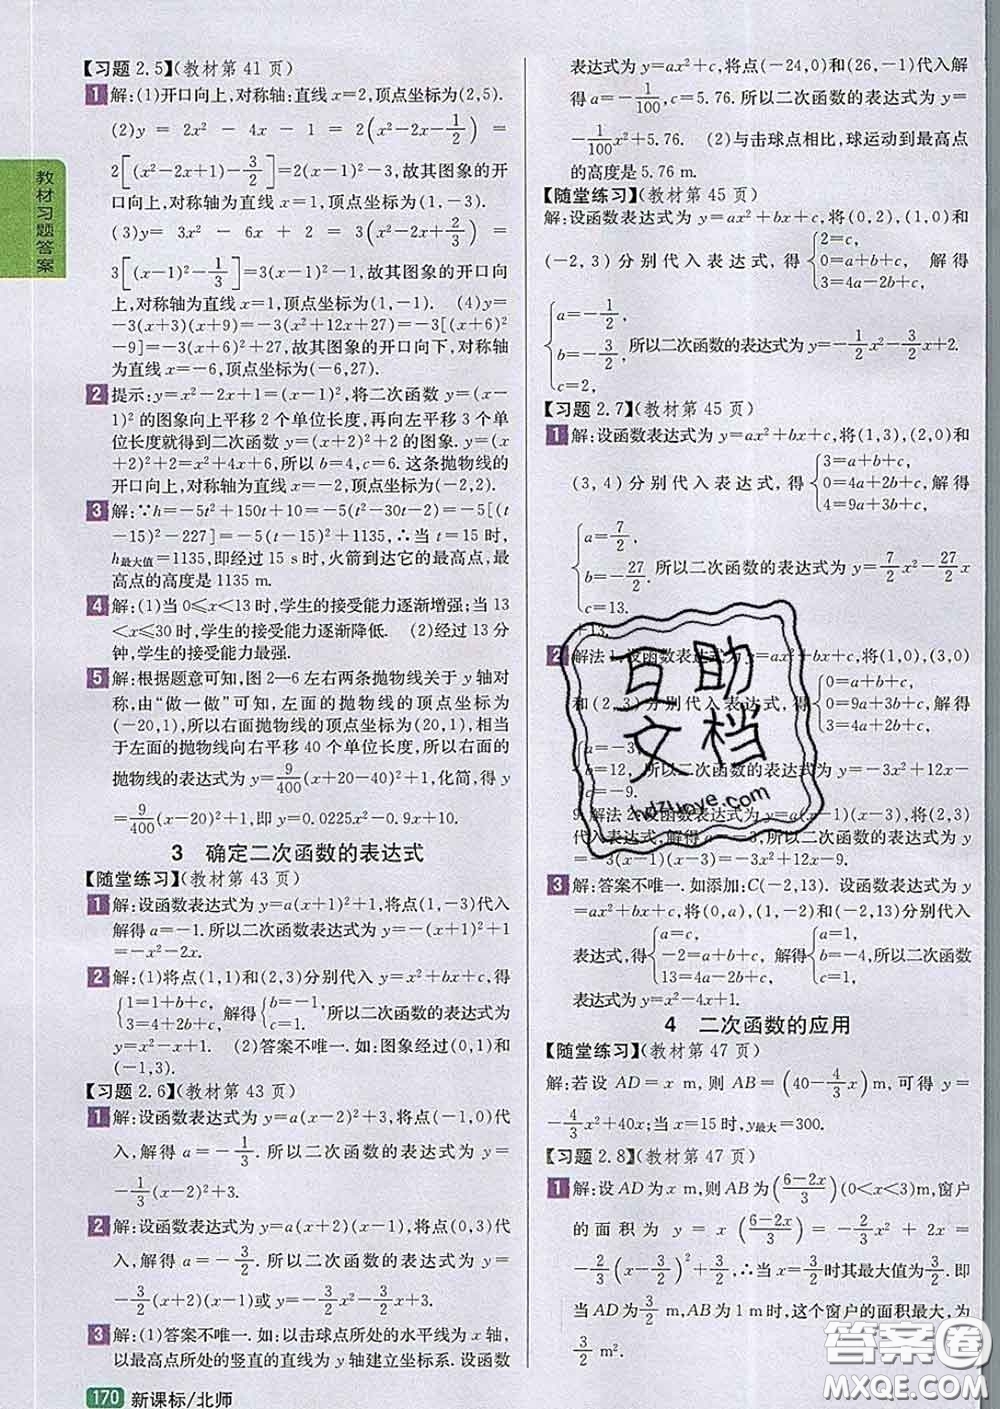 教材习题答案
【习题2.5】(教材第41页)
1 解:(1)开口向上,对称轴:直线x=2,顶点坐标为(2,5).
(2)y = 2x² - 4x - 1 = 2(x²-2x-1/2) =
2[(x²-2x+1)-3/2]=2(x-1)²-3,故其图象的开
口向上,对称轴为直线x=1,顶点坐标为(1,-3).
(3)y = 3x² - 6x + 2 = 3(x²-2x+2/3) =
3[(x-1)²-1/3]=3(x-1)²-1,故其图象的开口向
上,对称轴为直线x=1,顶点坐标为(1,-1). (4)y=
-3(x+3)(x+9)=-3(x²+12x+27)=-3[(x+6)²
-9]=-3(x+6)²+27,故其图象的开口向下,对称轴
为直线x=-6,顶点坐标为(-6,27).
2 提示:y=x²-2x+1=(x-1)²,将二次函数y=(x-
1)²的图象向上平移2个单位长度,再向左平移3个单
位长度就得到二次函数y=(x+2)²+2的图象.y=(x
+2)²+2=x²+4x+6,所以b=4,c=6.这条抛物线的
开口向上,对称轴为直线x=-2,顶点坐标为(-2,2).
3 解:∵h=-5t²+150t+10=-5(t²-30t-2)=-5[(t
-15)²-227]=-5(t-15)²+1135,∴当t=15时,
h最大值=1135,即经过15 s时,火箭到达它的最高点,最
高点的高度是1135 m.
4 解:(1)当0≤x<13时,学生的接受能力逐渐增强;当13
<x≤30时,学生的接受能力逐渐降低. (2)经过13分
钟,学生的接受能力最强.
5 解:根据题意可知,图2—6左右两条抛物线关于y轴对
称,由“做一做”可知,左面的抛物线的顶点坐标为
(-20,1),所以右面抛物线的顶点坐标为(20,1),相当
于左面的抛物线向右平移40个单位长度,所以右面的
抛物线的表达式为y=9/400(x+20-40)²+1,化简,得y
=9/400(x-20)²+1,即y=0.0225x²-0.9x+10.
3 确定二次函数的表达式
【随堂练习】(教材第43页)
1 解:设函数表达式为y=a(x+1)²+1,将点(1,-3)代入
解得a=-1.所以二次函数的表达式为y=-(x+1)²+1
=-x²-2x.
2 解:(1)将点(1,1)和(2,3)分别代入y=x²+bx+c,得
{1=1+b+c, 3=4+2b+c, 解得{b=-1, c=1. 所以二次函数的表达式为
y=x²-x+1. (2)答案不唯一.如:图象经过(0,1)和
(-1,3).
【习题2.6】(教材第43页)
1 解:设函数表达式为y=a(x-2)²+3,将点(-1,0)代
入,解得a=-1/3.所以二次函数的表达式为y=
-1/3(x-2)²+3.
2 解:设函数表达式为y=a(x+2)(x-1),将点(0,3)代
入,解得a=-3/2.所以二次函数的表达式为y=
-3/2(x+2)(x-1)或y=-3/2x²-3/2x+3.
3 解:(1)答案不唯一.如:以击球点所处的水平线为x轴,
以最高点所处的竖直的直线为y轴建立坐标系.设函数
170 新课标/北师
表达式为y=ax²+c,将点(-24,0)和(26,-1)代入解
得a=-1/100,c=5.76.所以二次函数的表达式为y=
-1/100x²+5.76. (2)与击球点相比,球运动到最高点
的高度是5.76 m.
【随堂练习】(教材第45页)
解:设函数表达式为y=ax²+bx+c,将(0,2),(1,0)和
(-2,3)分别代入表达式,得{2=c, 0=a+b+c, 3=4a-2b+c, 解得
{a=-1/2, b=-3/2, c=2, 所以二次函数的表达式为y=-1/2x²-3/2x+2.
【习题2.7】(教材第45页)
1 解:设函数表达式为y=ax²+bx+c,将(1,3),(2,0)和
(3,4)分别代入表达式,得{3=a+b+c, 0=4a+2b+c, 4=9a+3b+c, 解得
{a=7/2, b=-27/2, c=13. 所以二次函数的表达式为y=7/2x²-27/2x
+13.
2 解法1:设函数表达式为y=ax²+bx+c,将(1,0),(3,0)
和(2,3)分别代入表达式,得{0=a+b+c, 0=9a+3b+c, 3=4a+2b+c, 解得
{a=-3, b=12, c=-9. 所以二次函数的表达式为y=-3x²+12x-
9.解法2:设函数表达式为y=a(x-1)(x-3),将(2,3)
代入表达式,解得a=-3.所以二次函数的表达式为y=
-3(x-1)(x-3)=-3x²+12x-9.
3 解:答案不唯一.如添加:C(-2,13). 设函数表达式为
y=ax²+bx+c,将(0,a),(1,-2),(-2,13)分别代入
表达式,得{a=c, -2=a+b+c, 13=4a-2b+c, 解得{a=1, b=-4, c=1. 所以二次函数的
表达式为y=x²-4x+1.
4 二次函数的应用
【随堂练习】(教材第47页)
解:若设AD=x m,则AB=(40-4/3x)m,可得y=
-4/3x²+40x;当x=15时,y最大=300.
【习题2.8】(教材第47页)
1 解:设AD为x m,则AB为((6-2x)/3)(0<x<3)m,窗户
的面积为y=x((6-2x)/3)=-2/3x²+2x=
-2/3(x-3/2)²+3/2,∴当x=3/2时其最大值为3/2.即
当AD为3/2 m,AB为1 m时,这个窗户的面积最大,为
3/2 m².
互助
文档
hdzuoye.com
答案圈
MXQE.COM